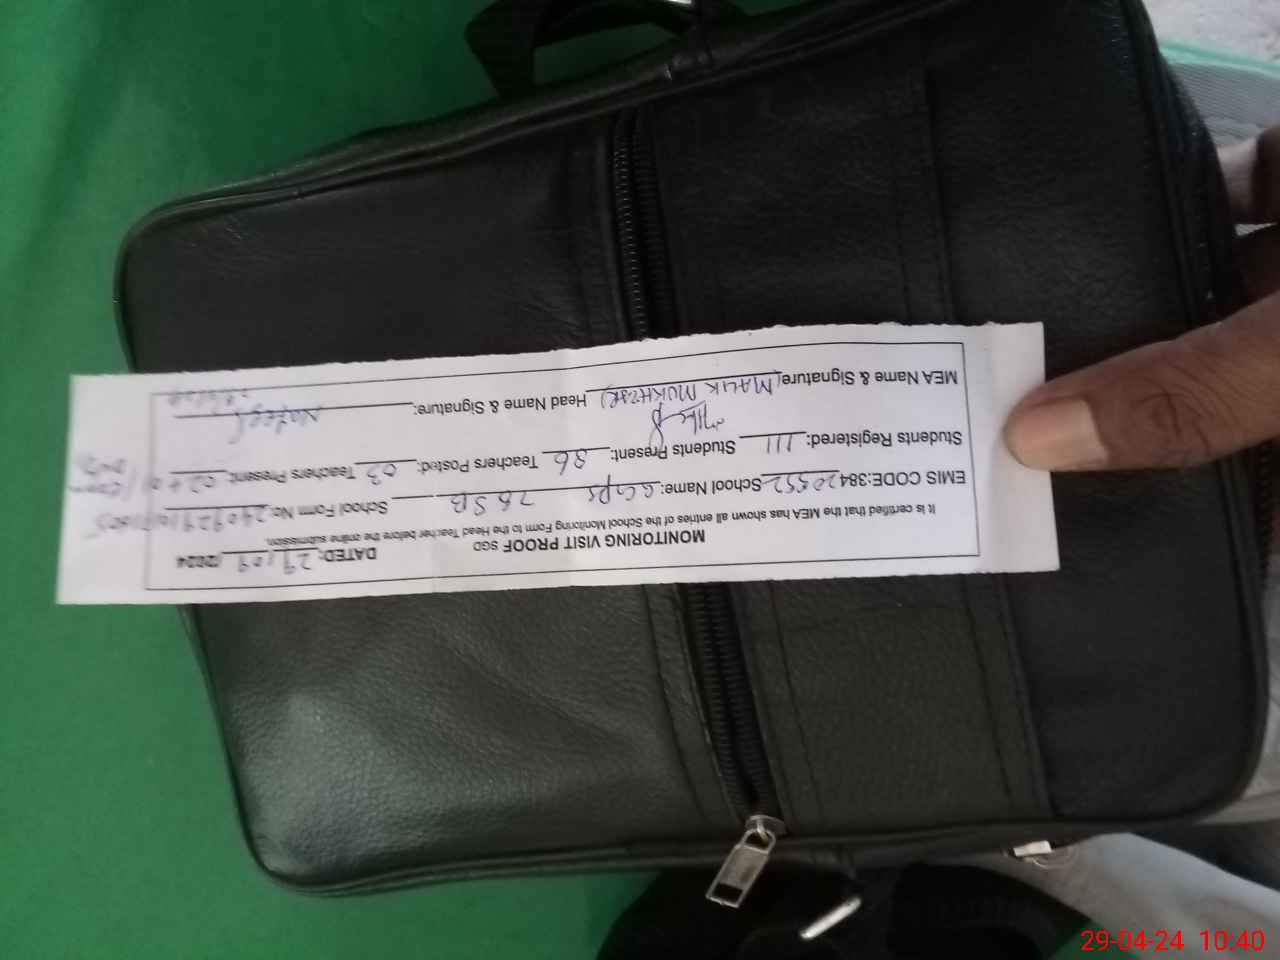 MONITORING VISIT PROOF SGD DATED: 29/09 /2024
It is certified that the MEA has shown all entries of the School Monitoring Form to the Head Teacher before the online submission.
EMIS CODE:38420552 School Name: GGPS 78 SB School Form No:
Students Registered: 111 Students Present: 86 Teachers Posted: 03 Teachers Present: 02+01
MEA Name & Signature: (MALIK MUKHTAR) Head Name & Signature:
29-04-24 10:40